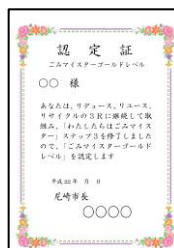 認定証
ごみマイスターゴールドレベル
○○ 様
あなたは、リデュース、リユース、
リサイクルの３Ｒに継続して取
組み、「わたしたちはごみマイス
ター」ステップ3を修了しました
ので、「ごみマイスターゴールド
レベル」を認定します
平成○○年 月 日
尼崎市長
○○○○